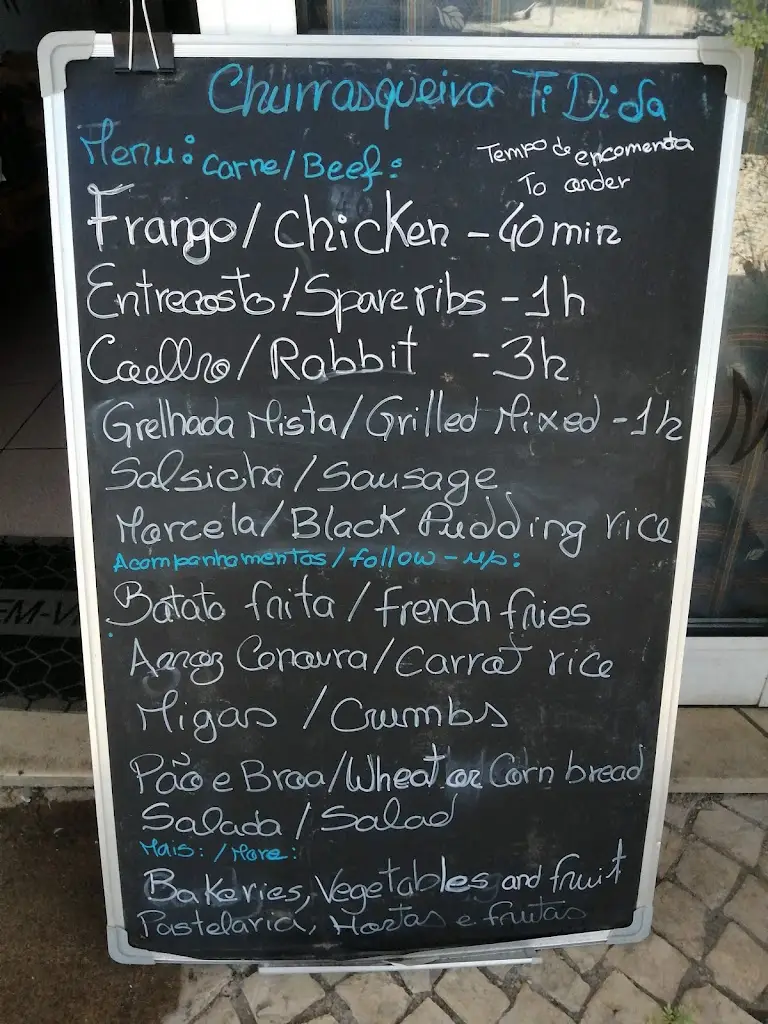 Churrasqueira Ti Dida
Menu: Carne/Beef:
Tempo de encomenda
To order
Frango/Chicken - 40 min
Entrecosto/Spare ribs - 1h
Coelho/Rabbit - 3h
Grelhada Mista/Grilled Mixed - 1h
Salsicha/Sausage
Morcela/Black Pudding rice
Acompanhamentos/follow-up:
Batata frita/french fries
Arroz Cenoura/Carrot rice
Migas/Crumbs
Pão e Broa/Wheat or Corn bread
Salada/Salad
Mais:/More:
Bakeries, Vegetables and fruit
Pastelaria, Hortas e frutas